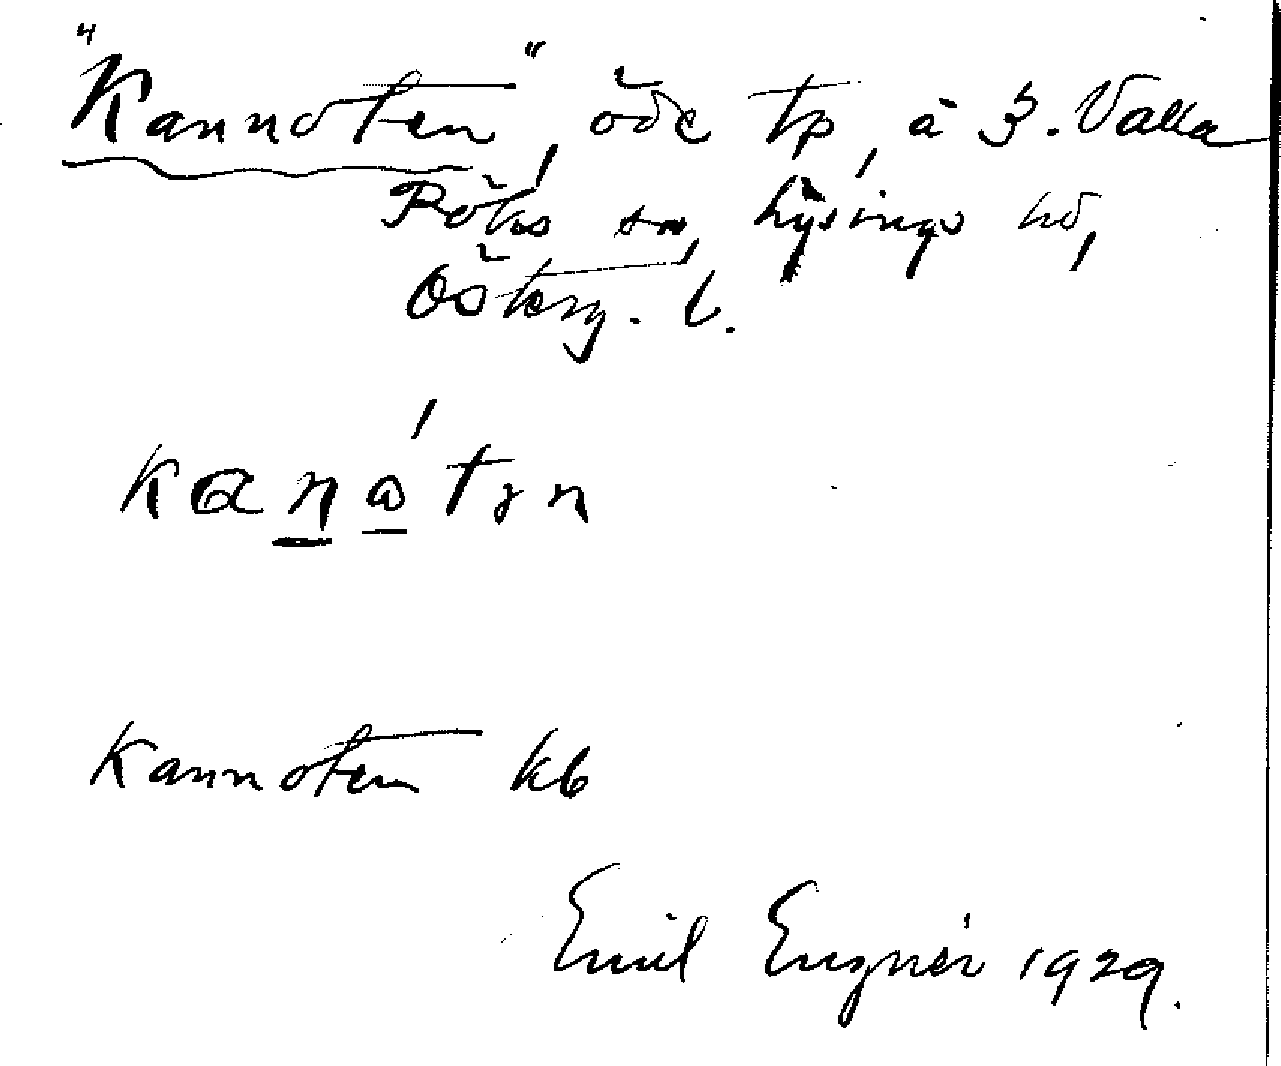 "Kannoten", öde tp, å 3. Valla
Röks sn, Lysings hd,
Österg. l.
kanåtʒn
Kannoten kb
Emil Engnér 1929.